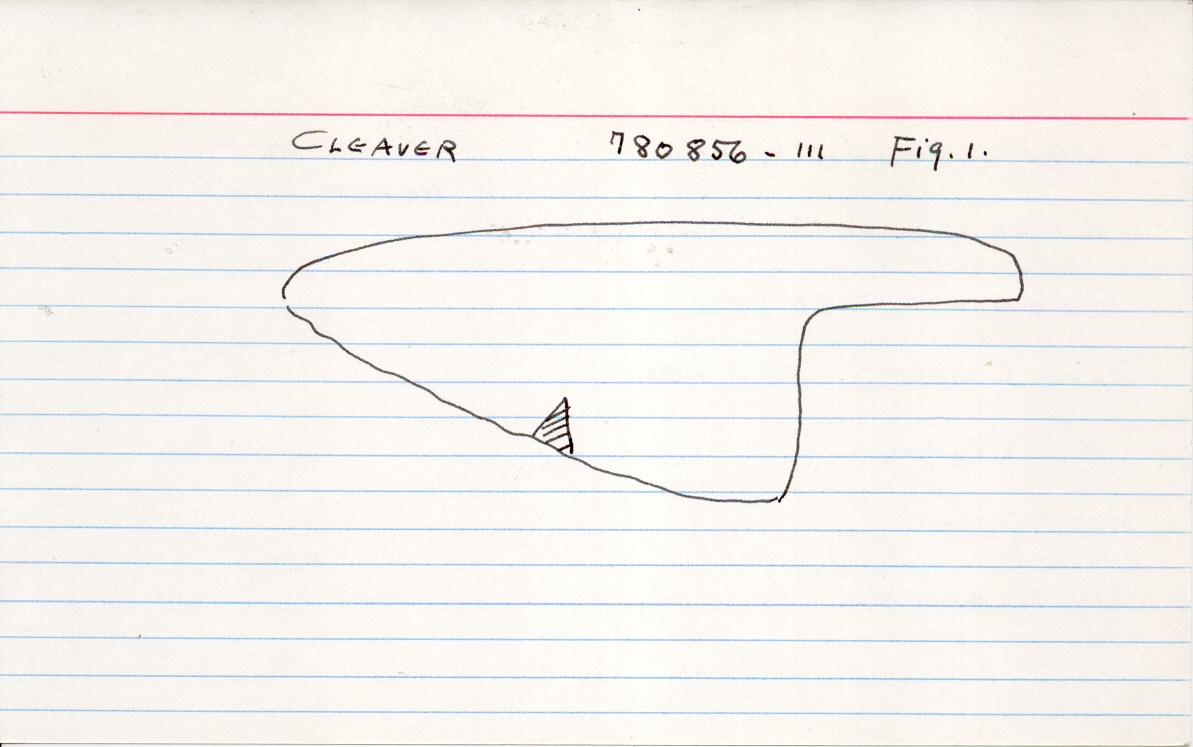 CLEAVER 780856-111 Fig. 1.